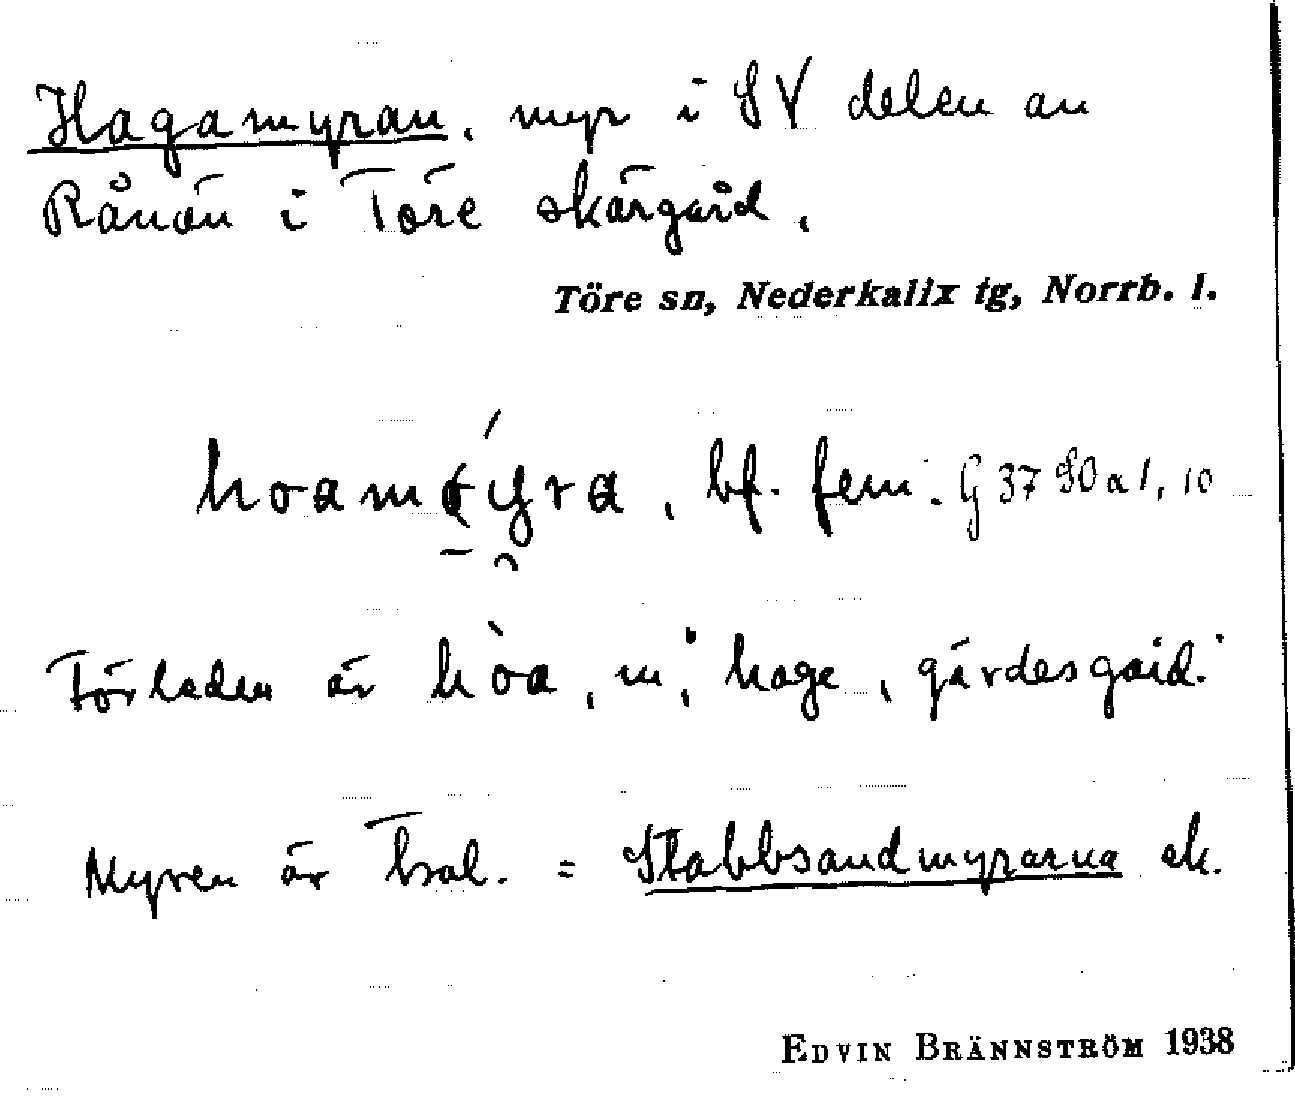 Hagamyran, myr i SV delen av
Rånön i Töre skärgård.
Töre sn, Nederkalix tg, Norrb. l.
hoam yra, bf. fem. G 37 90 a 1, 10
Förleden är hòa, m, 'hage, gärdesgård.'
Myren är = Stabbsandmyrarna ek.
EDVIN BRÄNNSTRÖM 1938